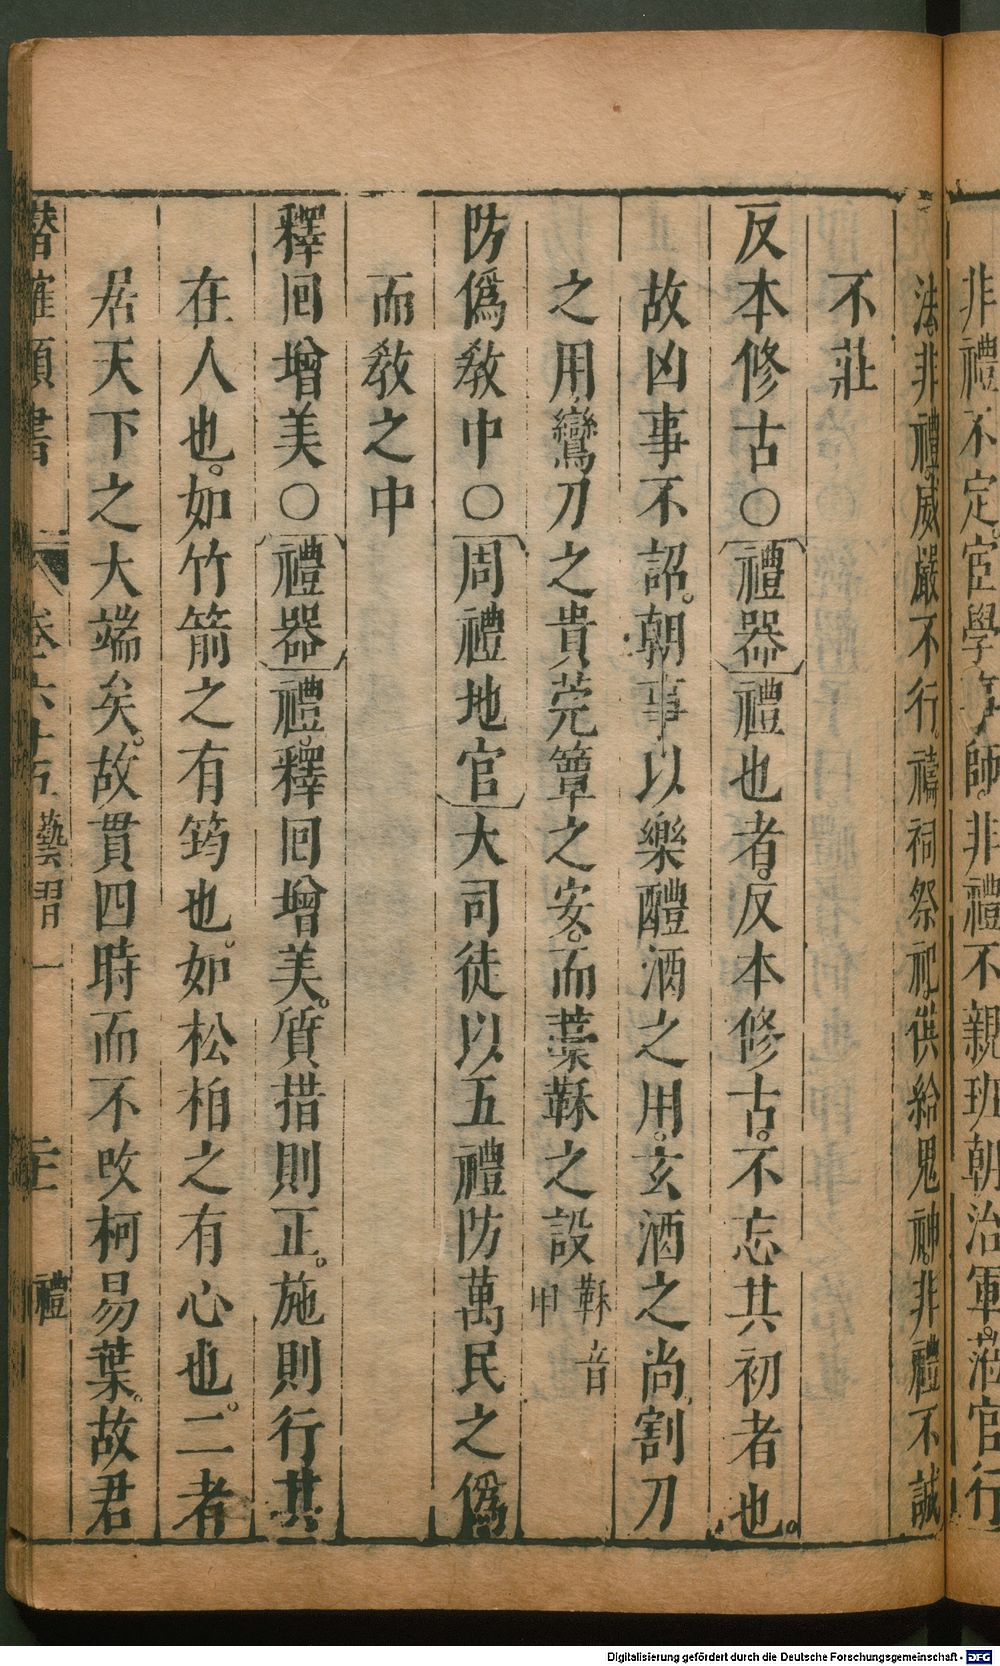 非禮不定宦學事師。非禮不親班朝治軍。涖官行
法非禮威嚴不行。禱祠祭祀。供給鬼神。非禮不誠
不莊
反本修古○禮器禮也者。反本修古。不忘其初者也。
故凶事不詔。朝事以樂醴酒之用。玄酒之尚割刀
之用鸞刀之貴莞簟之安。而藁鞂之設鞂音
甲
防僞敎中○周禮地官大司徒以五禮防萬民之僞
而敎之中
釋回增美○禮器禮。釋回增美。質措則正。施則行其
在人也。如竹箭之有筠也。如松柏之有心也。二者
居天下之大端矣。故貫四時而不改柯易葉。故君
潛確類書 卷六十五 藝習一 二十 禮
Digitalisierung gefördert durch die Deutsche Forschungsgemeinschaft - DFG